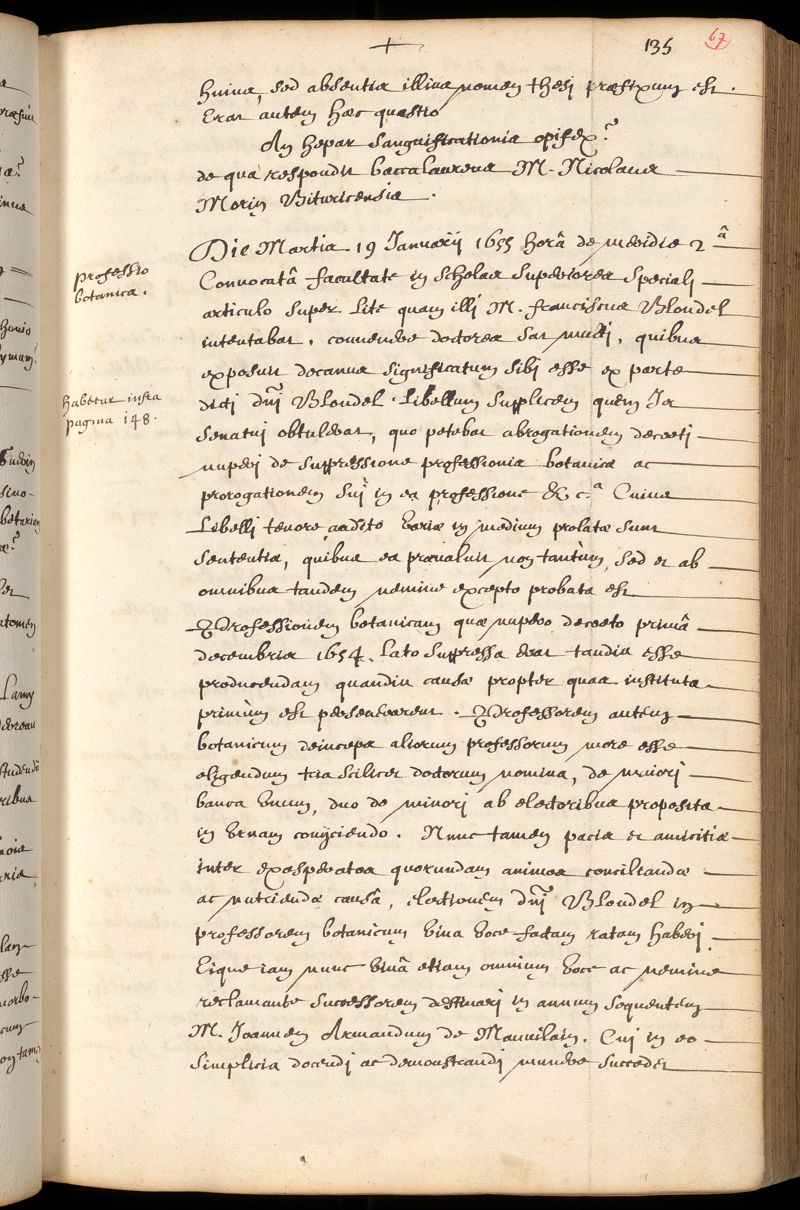 135 67
huius, sed absentia illius nomen thesi præfixum est.
Erat autem hæc quæstio
An hepar sanguificationis opifex?
de quâ respondit baccalaureus M. Nicolaus
Morin Bituricensis.
Die Martis 19 Januarij 1655 horâ de meridie 2â
professio
botanica.
Convocatâ facultate in scholas superiores speciali
articulo super lite quam illi M. franciscus Blondel
intentabat, convenere doctores sat multi, quibus
exposuit decanus significatum sibi esse ex parte
habetur infra
pagina 148.
dicti dni Blondel libellum supplicem quem Ter
Senatui obtulerat, quo petebat abrogationem decreti
nuperi de suppressione professionis botanicæ ac
prorogationem sui in ea professione &c.a Cuius
libelli tenore audito variæ in medium prolatæ sunt
sententiæ, quibus ea prævaluit non tantùm, sed et ab
omnibus tandem nemine excepto probata est
Professionem botanicam quæ nupero decreto primâ
decembris 1654. lato suppressa erat tandiu esse
producendam quandiu causæ propter quas instituta
primùm est perseverarent. Professorem autem
botanicum deinceps aliorum professorum more esse
eligendum tria scilicet doctorum nomina, de maiori
banca unum, duo de minori ab electoribus proposita
in urnam conijciendo. Nunc tamen pacis et amicitiæ
inter exasperatos quorundam animos conciliandæ
ac nutriendæ causâ, electionem dni Blondel in
professorem botanicum viva voce factam ratam haberi.
Eique iam nunc vivâ etiam omnium voce ac nemine
reclamante successorem destinari in annum sequentem
M. Joannem Armandum de Mauvilain. Cui in eo
simplicia docendi ac demonstrandi munere succedet